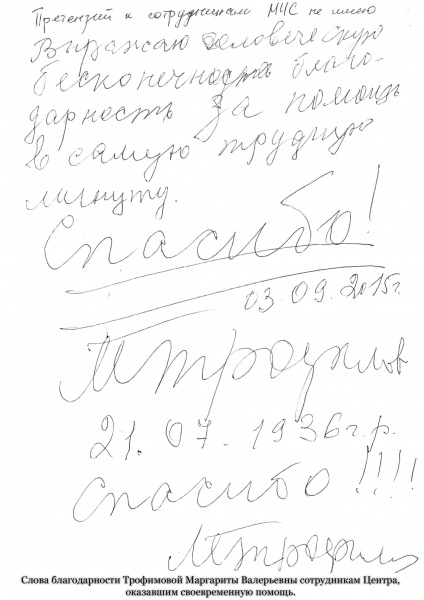 Претензий к сотрудникам МЧС не имею
Выражаю человеческую
бесконечность благо-
дарность за помощь
в самую трудную
минуту.
Спасибо!
03.09.2015г.
МТрофимов
21.07.1936г.р.
Спасибо!!!!
Слова благодарности Трофимовой Маргариты Валерьевны сотрудникам Центра,
оказавшим своевременную помощь.